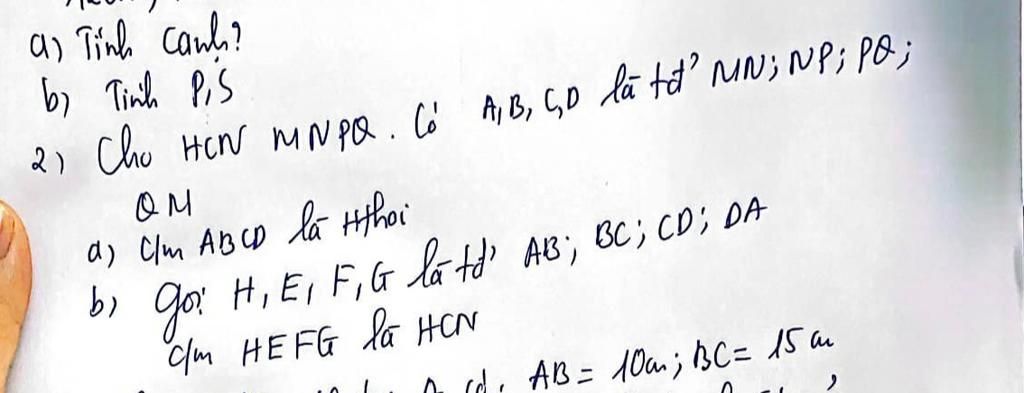 a) Tính cạnh?
b) Tính P, S
2) Cho HCN MNPQ. Có A, B, C, D là tđ' MN; NP; PQ;
QM
a) C/m ABCD là Hthoi
b) gọi H, E, F, G là tđ' AB; BC; CD; DA
C/m HEFG là HCN
AB = 10cm; BC = 15cm